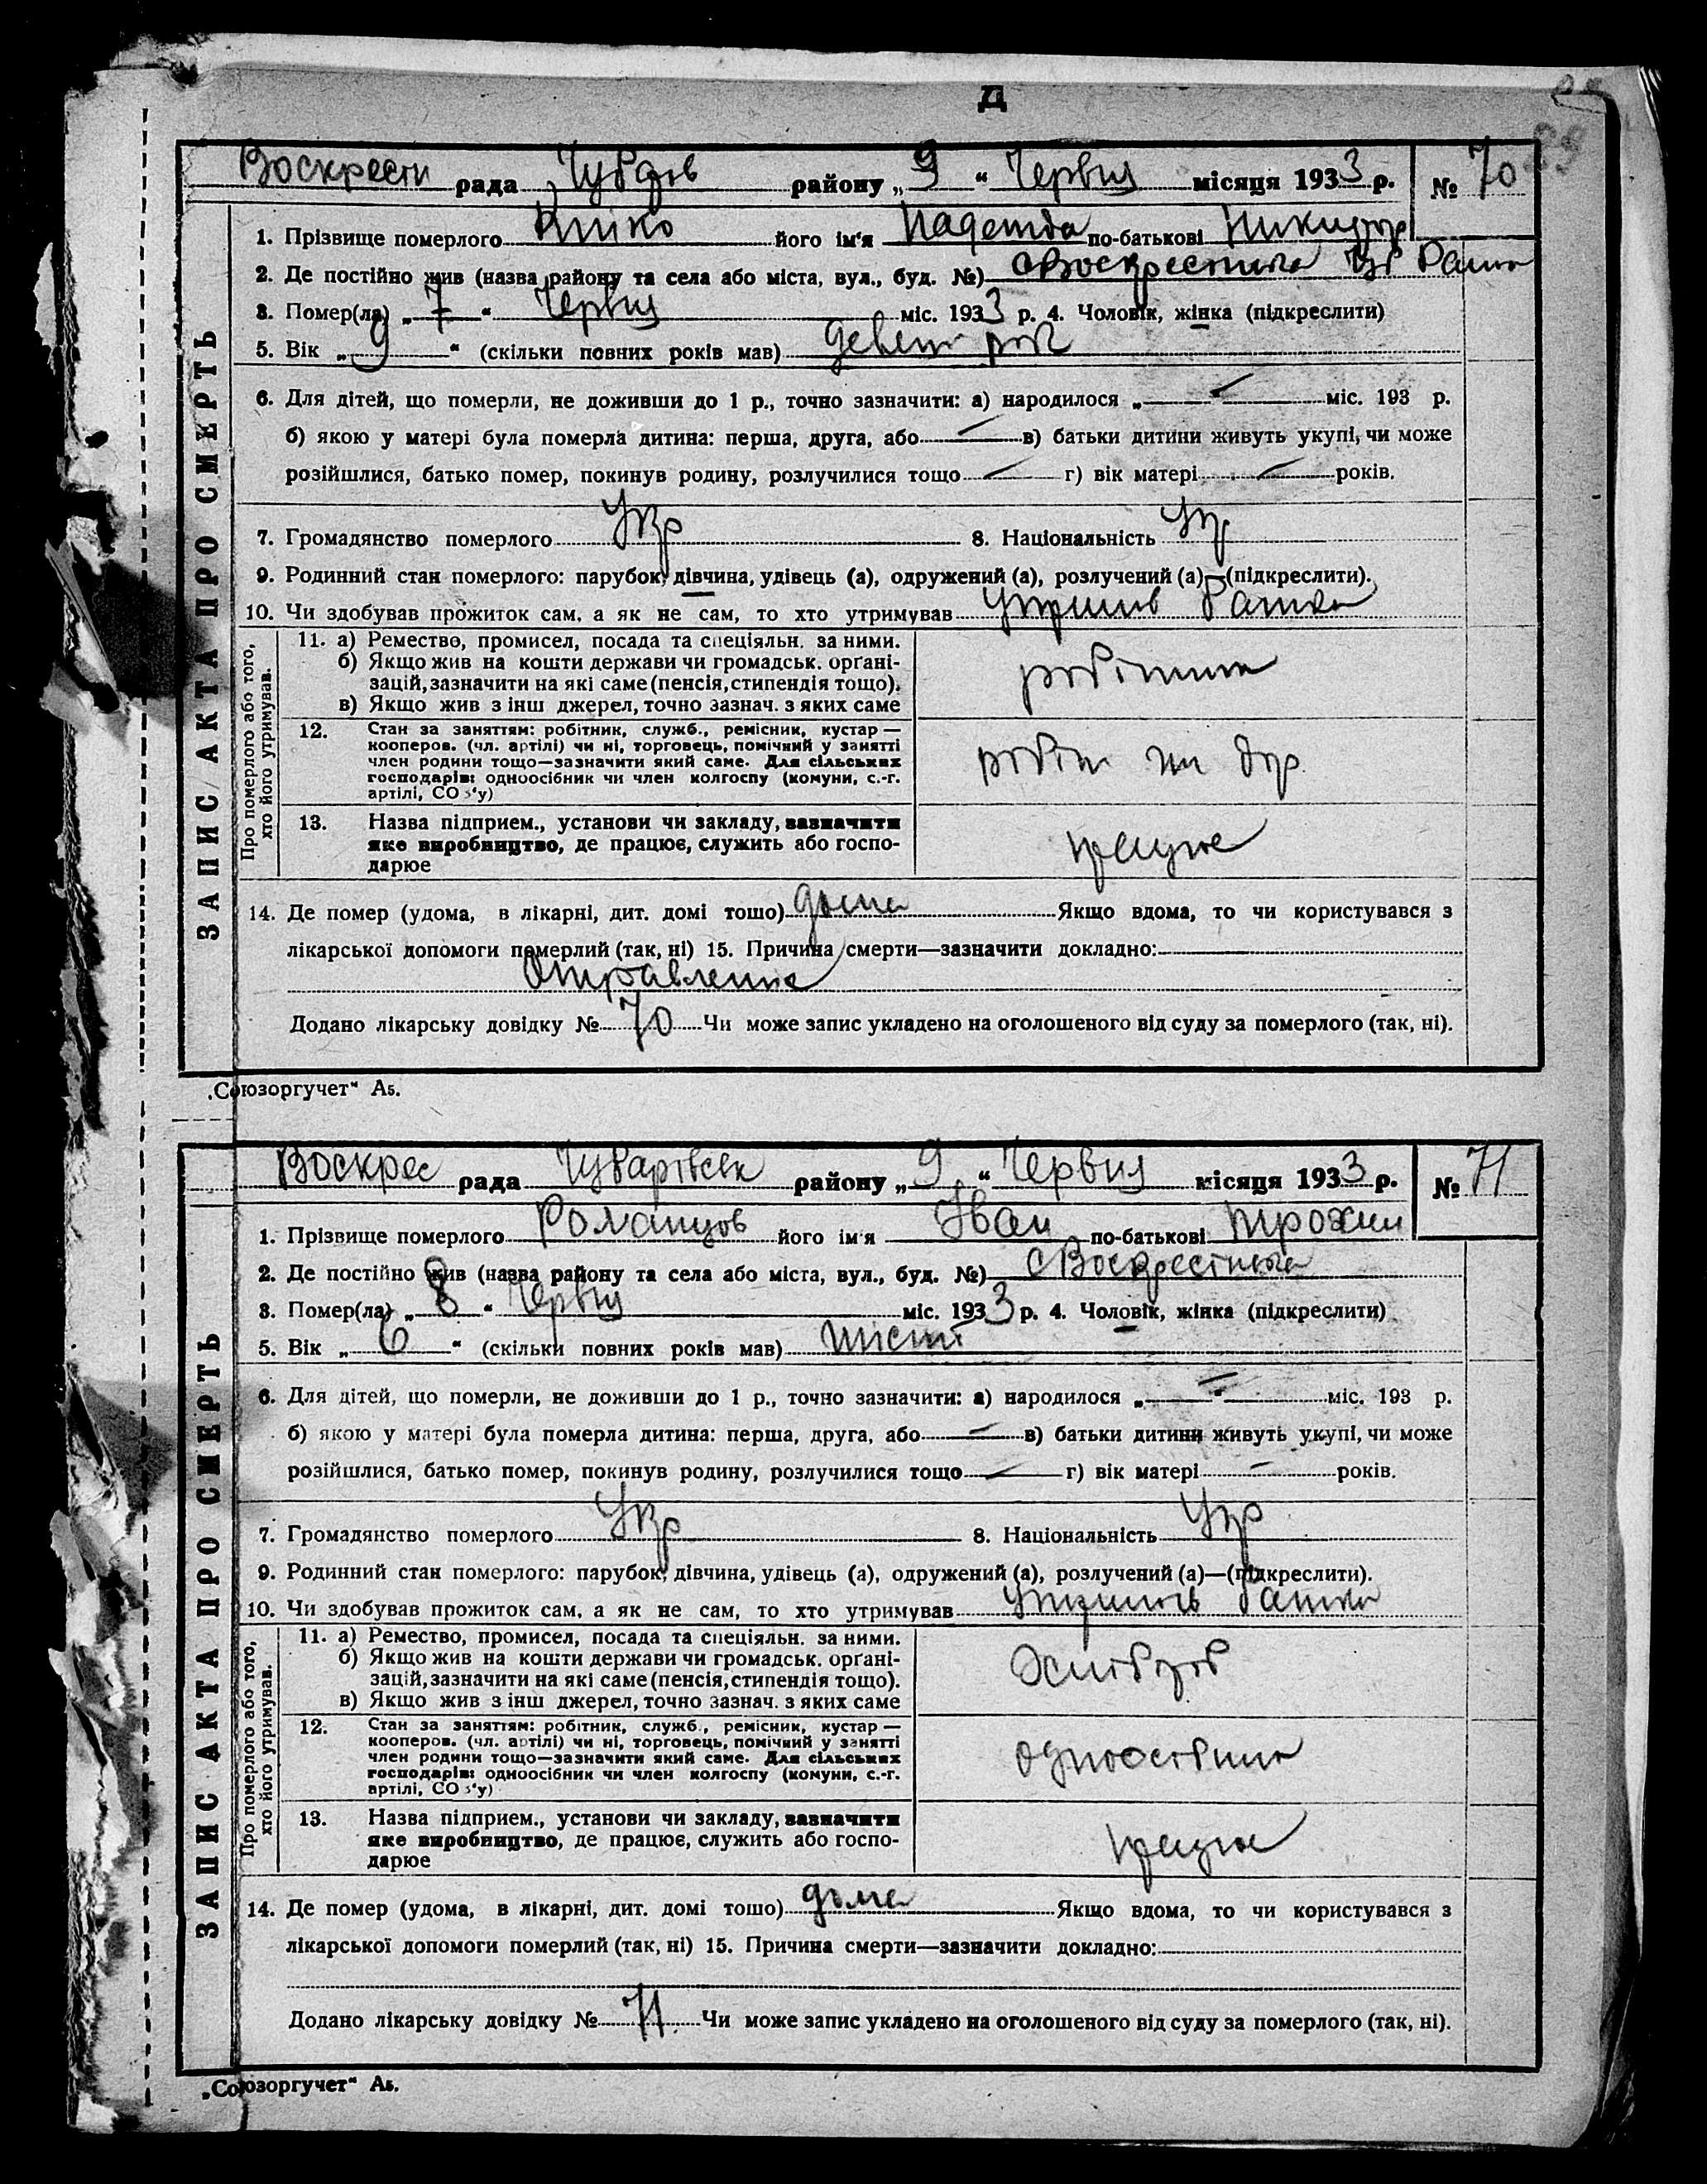 Д
Воскрести рада Чубарів району „9“ Червня місяця 1933 р. № 70
1. Прізвище померлого його ім'я Надежда по-батькові
2. Де постійно жив (назва району та села або міста, вул., буд. №) с Воскрестнка
3. Помер(ла) „7“ Червня міс. 1933 р. 4. Чоловік, жінка (підкреслити)
5. Вік „9“ (скільки повних років мав) девят рок
6. Для дітей, що померли, не доживши до 1 р., точно зазначити: а) народилося „ “ міс. 193 р.
б) якою у матері була померла дитина: перша, друга, або в) батьки дитини живуть укупі, чи може
розійшлися, батько помер, покинув родину, розлучилися тощо г) вік матері років.
7. Громадянство померлого Укр 8. Національність Укр
9. Родинний стан померлого: парубок, дівчина, удівець (а), одружений (а), розлучений (а)—(підкреслити).
10. Чи здобував прожиток сам, а як не сам, то хто утримував
11. а) Ремество, промисел, посада та спеціяльн. за ними.
б) Якщо жив на кошти держави чи громадськ. орґані-
зацій, зазначити на які саме (пенсія, стипендія тощо).
в) Якщо жив з інш джерел, точно зазнач. з яких саме
12. Стан за заняттям: робітник, служб., ремісник, кустар —
кооперов. (чл. артілі) чи ні, торговець, помічний у занятті
член родини тощо—зазначити який саме. Для сільських
господарів: одноосібник чи член колгоспу (комуни, с.-г.
артілі, СО з'у)
13. Назва підприєм., установи чи закладу, зазначити
яке виробництво, де працює, служить або госпо-
дарює
працює
14. Де помер (удома, в лікарні, дит. домі тощо) дома Якщо вдома, то чи користувався з
лікарської допомоги померлий (так, ні) 15. Причина смерти—зазначити докладно:
Отравление
Додано лікарську довідку № 70 Чи може запис укладено на оголошеного від суду за померлого (так, ні).
ЗАПИС АКТА ПРО СМЕРТЬ
Про померлого або того,
хто його утримував.
„Союзоргучет“ А5.
Воскрес рада Чубарівськ району „9“ Червня місяця 1933 р. № 71
1. Прізвище померлого Романцов його ім'я Іван по-батькові Трохим
2. Де постійно жив (назва району та села або міста, вул., буд. №) с Воскрестнка
3. Помер(ла) „8“ Червня міс. 1933 р. 4. Чоловік, жінка (підкреслити)
5. Вік „6“ (скільки повних років мав) шість
6. Для дітей, що померли, не доживши до 1 р., точно зазначити: а) народилося „ “ міс. 193 р.
б) якою у матері була померла дитина: перша, друга, або в) батьки дитини живуть укупі, чи може
розійшлися, батько помер, покинув родину, розлучилися тощо г) вік матері років.
7. Громадянство померлого Укр 8. Національність Укр
9. Родинний стан померлого: парубок, дівчина, удівець (а), одружений (а), розлучений (а)—(підкреслити).
10. Чи здобував прожиток сам, а як не сам, то хто утримував
11. а) Ремество, промисел, посада та спеціяльн. за ними.
б) Якщо жив на кошти держави чи громадськ. орґані-
зацій, зазначити на які саме (пенсія, стипендія тощо).
в) Якщо жив з інш джерел, точно зазнач. з яких саме
12. Стан за заняттям: робітник, служб., ремісник, кустар —
кооперов. (чл. артілі) чи ні, торговець, помічний у занятті
член родини тощо—зазначити який саме. Для сільських
господарів: одноосібник чи член колгоспу (комуни, с.-г.
артілі, СО з'у)
13. Назва підприєм., установи чи закладу, зазначити
яке виробництво, де працює, служить або госпо-
дарює
працює
14. Де помер (удома, в лікарні, дит. домі тощо) дома Якщо вдома, то чи користувався з
лікарської допомоги померлий (так, ні) 15. Причина смерти—зазначити докладно:
Додано лікарську довідку № 71 Чи може запис укладено на оголошеного від суду за померлого (так, ні).
ЗАПИС АКТА ПРО СМЕРТЬ
Про померлого або того,
хто його утримував.
„Союзоргучет“ А5.